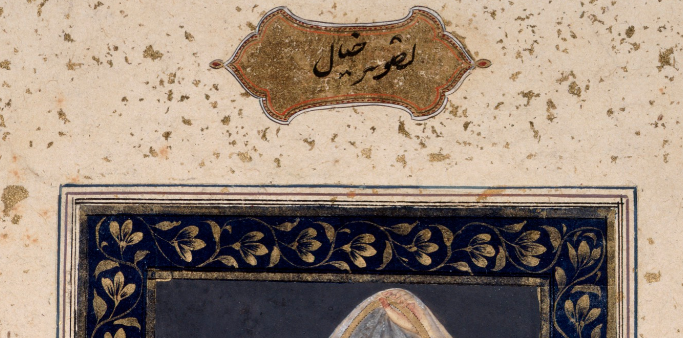 تصویر خیال